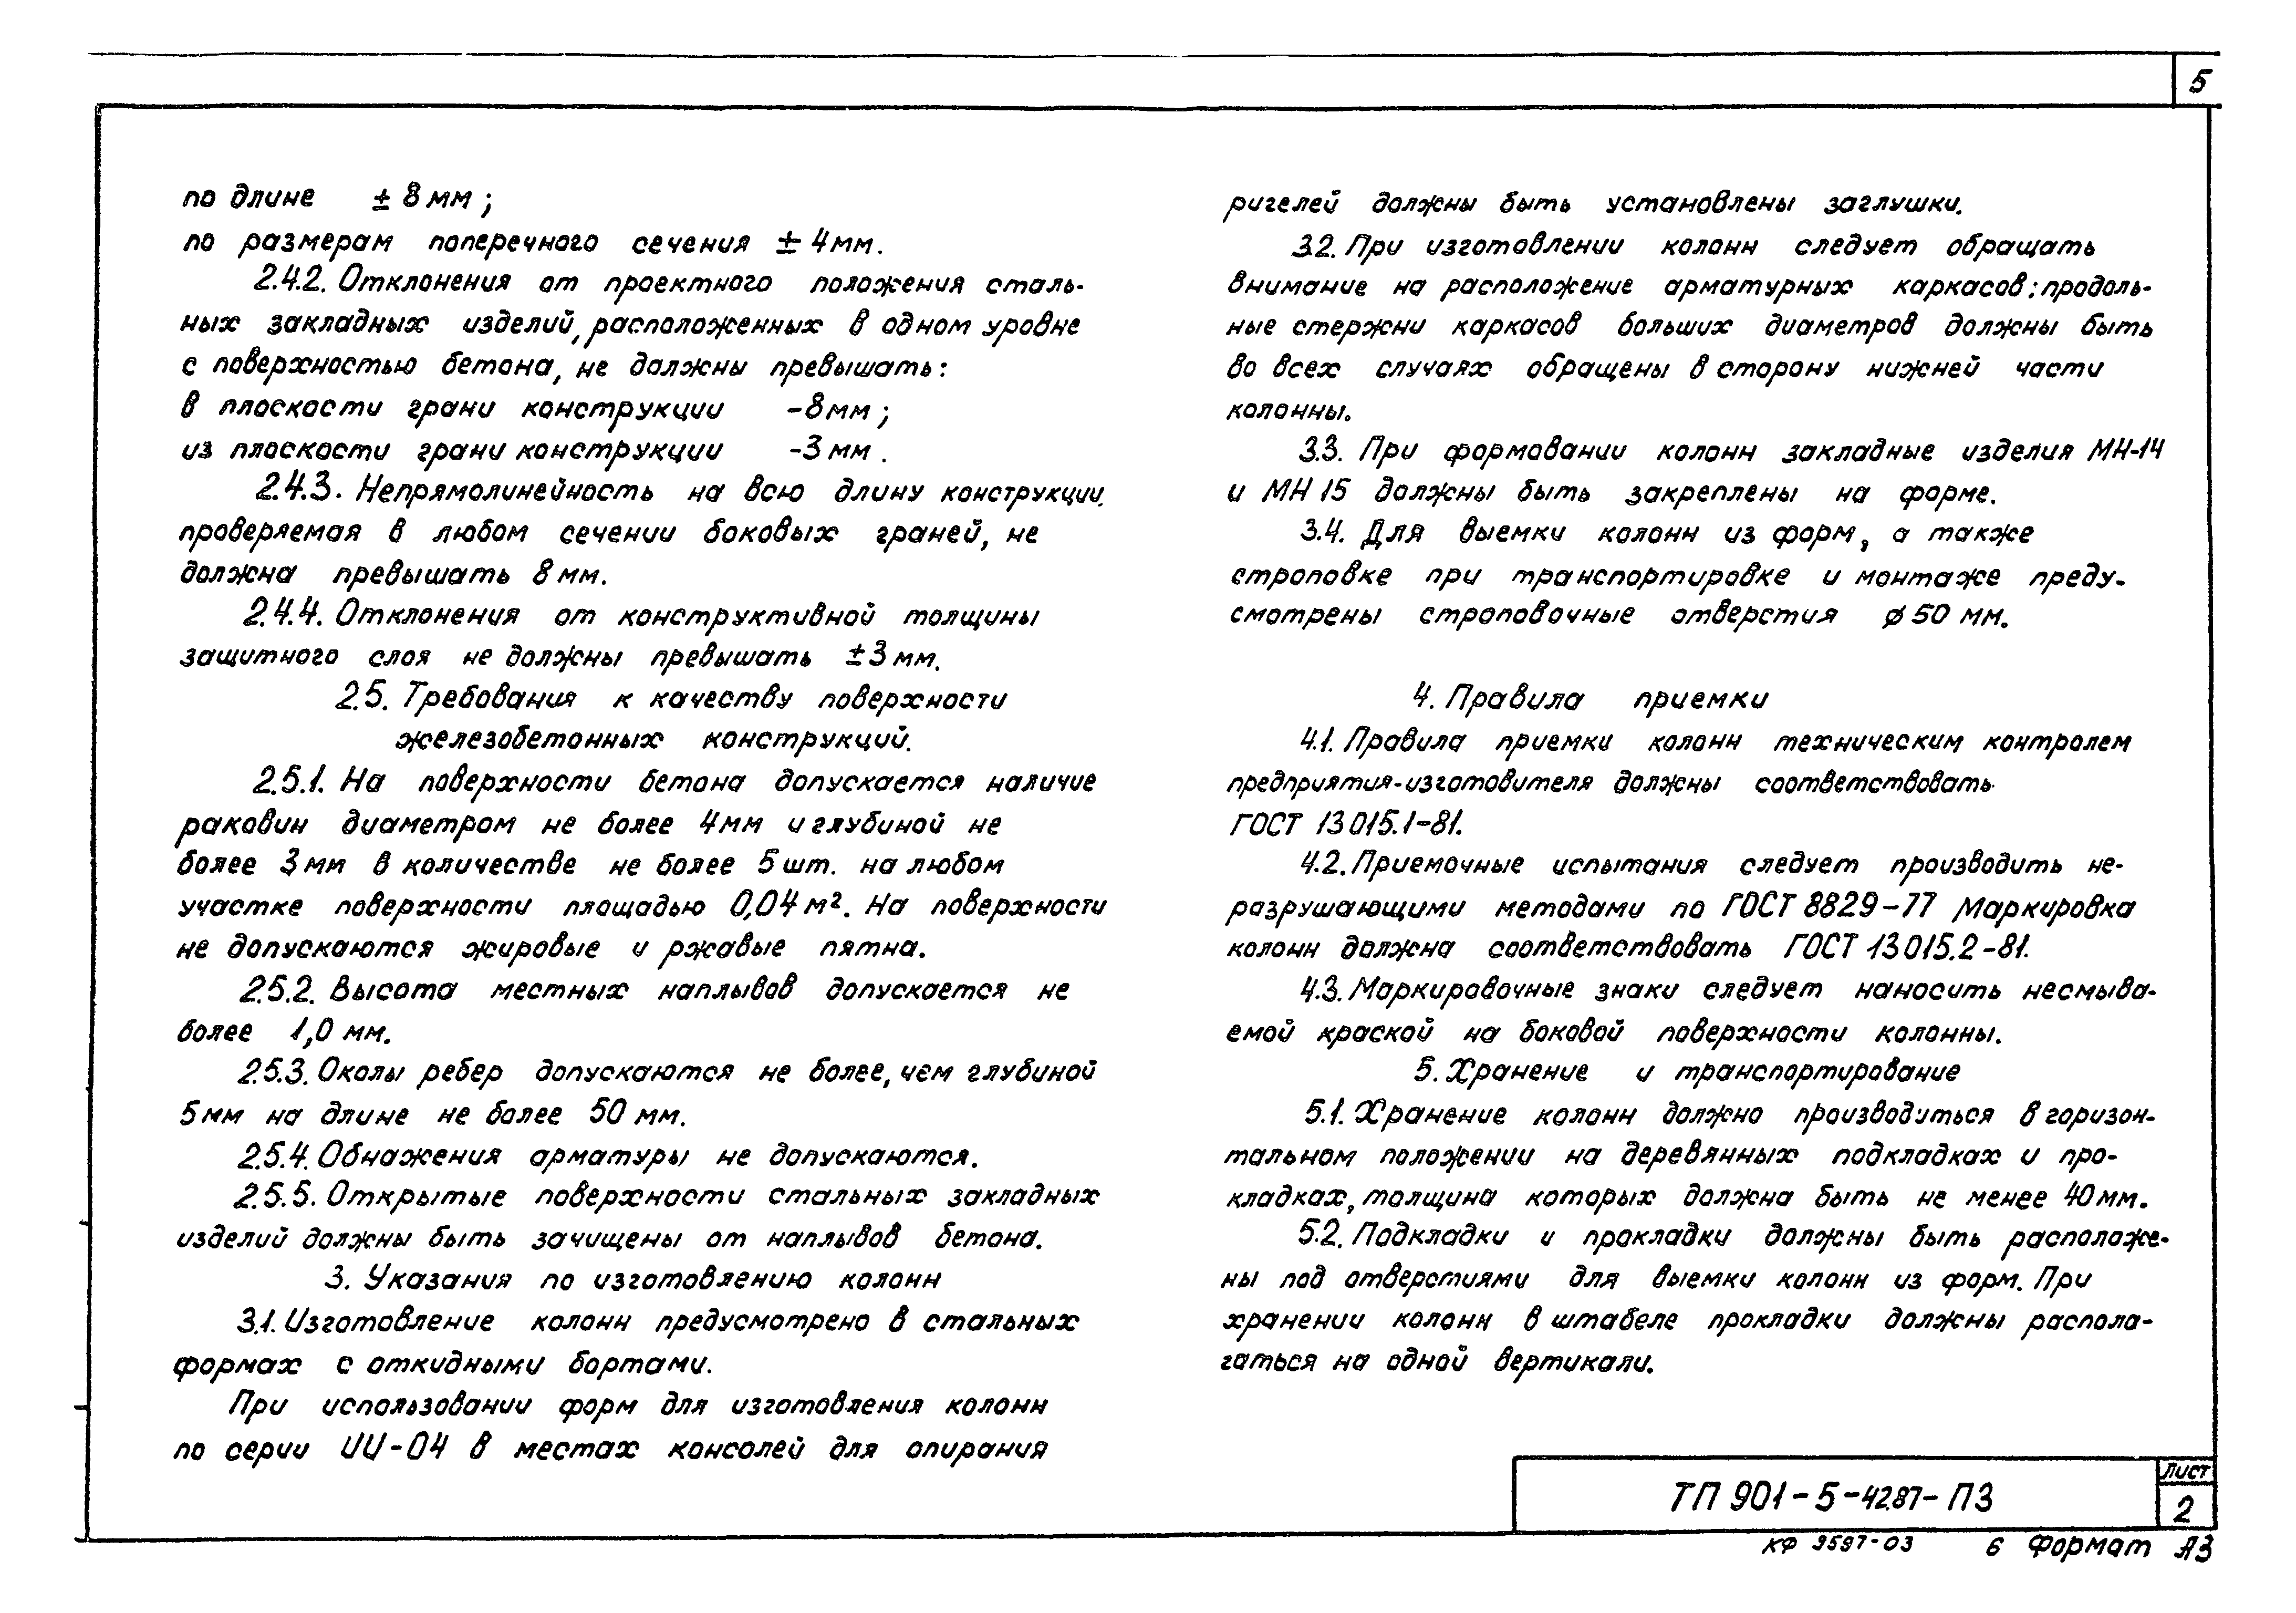 5
по длине ± 8 мм ;
по размерам поперечного сечения ± 4 мм.
2.4.2. Отклонения от проектного положения сталь-
ных закладных изделий, расположенных в одном уровне
с поверхностью бетона, не должны превышать:
в плоскости грани конструкции -8 мм ;
из плоскости грани конструкции -3 мм .
2.4.3. Непрямолинейность на всю длину конструкции,
проверяемая в любом сечении боковых граней, не
должна превышать 8 мм.
2.4.4. Отклонения от конструктивной толщины
защитного слоя не должны превышать ±3 мм.
2.5. Требования к качеству поверхности
железобетонных конструкций.
2.5.1. На поверхности бетона допускается наличие
раковин диаметром не более 4 мм и глубиной не
более 3 мм в количестве не более 5 шт. на любом
участке поверхности площадью 0,04 м². На поверхности
не допускаются жировые и ржавые пятна.
2.5.2. Высота местных наплывов допускается не
более 1,0 мм.
2.5.3. Околы ребер допускаются не более, чем глубиной
5 мм на длине не более 50 мм.
2.5.4. Обнажения арматуры не допускаются.
2.5.5. Открытые поверхности стальных закладных
изделий должны быть зачищены от наплывов бетона.
3. Указания по изготовлению колонн
3.1. Изготовление колонн предусмотрено в стальных
формах с откидными бортами.
При использовании форм для изготовления колонн
по серии ИИ-04 в местах консолей для опирания
ригелей должны быть установлены заглушки.
3.2. При изготовлении колонн следует обращать
внимание на расположение арматурных каркасов: продоль-
ные стержни каркасов больших диаметров должны быть
во всех случаях обращены в сторону нижней части
колонны.
3.3. При формовании колонн закладные изделия МН-14
и МН 15 должны быть закреплены на форме.
3.4. Для выемки колонн из форм, а также
строповке при транспортировке и монтаже преду-
смотрены строповочные отверстия ø 50 мм.
4. Правила приемки
4.1. Правила приемки колонн техническим контролем
предприятия-изготовителя должны соответствовать
ГОСТ 13015.1-81.
4.2. Приемочные испытания следует производить не-
разрушающими методами по ГОСТ 8829-77 Маркировка
колонн должна соответствовать ГОСТ 13015.2-81.
4.3. Маркировочные знаки следует наносить несмыва-
емой краской на боковой поверхности колонны.
5. Хранение и транспортирование
5.1. Хранение колонн должно производиться в горизон-
тальном положении на деревянных подкладках и про-
кладках, толщина которых должна быть не менее 40 мм.
5.2. Подкладки и прокладки должны быть расположе-
ны под отверстиями для выемки колонн из форм. При
хранении колонн в штабеле прокладки должны распола-
гаться на одной вертикали.
ТП 901-5-42.87-ПЗ
Лист
2
КФ 9597-03 6 Формат А3